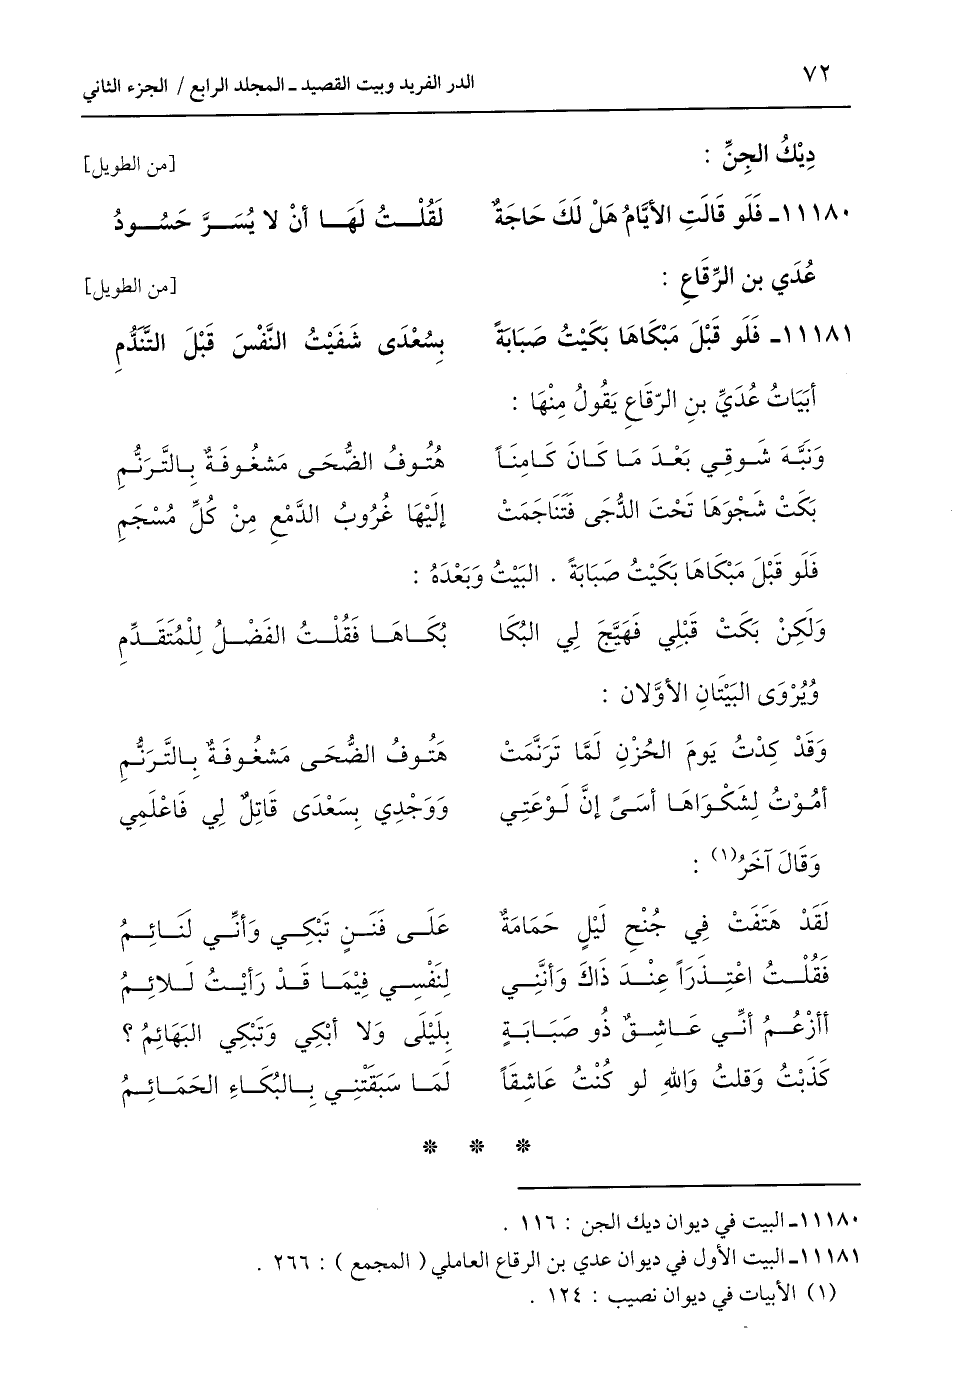 ٧٢ الدر الفريد وبيت القصيد ـ المجلد الرابع / الجزء الثاني
دِيْكُ الجِنِّ : [من الطويل]
١١١٨٠ـ فَلَو قَالَتِ الأيَّامُ هَلْ لَكَ حَاجَةٌ لَقُلْتُ لَهَا أنْ لا يُسَرَّ حَسُودُ
عُدَي بن الرِّقَاعِ : [من الطويل]
١١١٨١ـ فَلَو قَبْلَ مَبْكَاهَا بَكَيْتُ صَبَابَةً بِسُعْدَى شَفَيْتُ النَّفْسَ قَبْلَ التَّنَدُّمِ
أبيَاتُ عُدَيِّ بنِ الرِّقَاعِ يَقُولُ مِنْهَا :
وَنَبَّهَ شَوقِي بَعْدَ مَا كَانَ كَامِنَاً هُتُوفُ الضُّحَى مَشغُوفَةٌ بِالتَّرَنُّمِ
بَكَتْ شَجْوَهَا تَحْتَ الدُّجَى فَتَنَاجَمَتْ إلَيْهَا غُرُوبُ الدَّمْعِ مِنْ كُلِّ مُسْجَمِ
فَلَو قَبْلَ مَبْكَاهَا بَكَيْتُ صَبَابَةً . البَيْتُ وَبَعْدَهُ :
وَلَكِنْ بَكَتْ قَبْلِي فَهَيَّجَ لِي البُكَا بُكَاهَا فَقُلْتُ الفَضْلُ لِلْمُتَقَدِّمِ
وَيُرْوَى البَيْتَانِ الأوَّلان :
وَقَدْ كِدْتُ يَومَ الحُزْنِ لَمَّا تَرَنَّمَتْ هَتُوفُ الضُّحَى مَشغُوفَةٌ بِالتَّرَنُّمِ
أمُوْتُ لِشَكْوَاهَا أسَىً إنَّ لَوْعَتِي وَوَجْدِي بِسَعْدَى قَاتِلٌ لِي فَاعْلَمِي
وَقَالَ آخَرُ(١) :
لَقَدْ هَتَفَتْ فِي جُنْحِ لَيْلٍ حَمَامَةٌ عَلَى فَنَنٍ تَبْكِي وَأنِّي لَنَائِمُ
فَقُلْتُ اعْتِذَرَاً عِنْدَ ذَاكَ وَأنَّنِي لِنَفْسِي فِيْمَا قَدْ رَأيْتُ لَلائِمُ
أأزْعُمُ أنِّي عَاشِقٌ ذُو صَبَابَةٍ بِلَيْلَى وَلا أبْكِي وَتَبْكِي البَهَائِمُ ؟
كَذَبْتُ وَقلتُ وَاللهِ لو كُنْتُ عَاشِقَاً لَمَا سَبَقَتْنِي بِالبُكَاءِ الحَمَائِمُ
* * *
١١١٨٠ـ البيت في ديوان ديك الجن : ١١٦ .
١١١٨١ـ البيت الأول في ديوان عدي بن الرقاع العاملي ( المجمع ) : ٢٦٦ .
(١) الأبيات في ديوان نصيب : ١٢٤ .